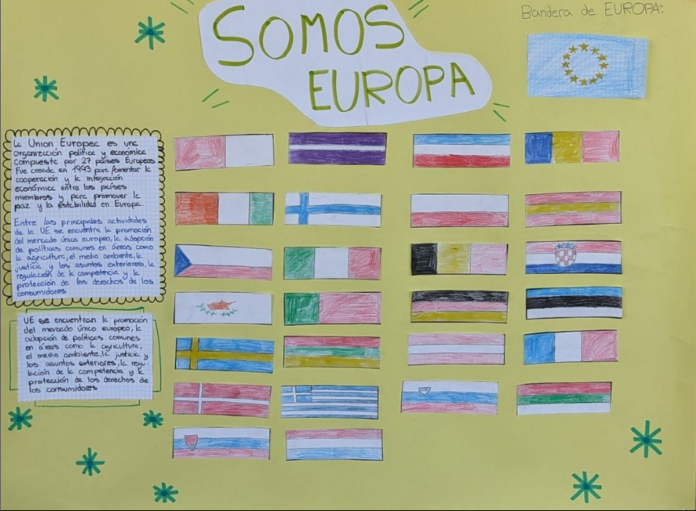 SOMOS
EUROPA
Bandera de EUROPA:
La Unión Europea es una
organización política y económica
compuesta por 27 países Europeos
Fue creada en 1993 para fomentar la
cooperación y la integración
económica entre los países
miembros y para promover la
paz y la estabilidad en Europa.
Entre las principales actividades
de la UE se encuentra la promoción
del mercado único europeo, la adopción
de políticas comunes en áreas como
la agricultura, el medio ambiente, la
justicia y los asuntos exteriores, la
regulación de la competencia y la
protección de los derechos de los
consumidores.
UE se encuentran la promoción
del mercado único europeo, la
adopción de políticas comunes
en áreas como la agricultura,
el medio ambiente, la justicia y
los asuntos exteriores, la regu-
lación de la competencia y la
protección de los derechos de
los consumidores